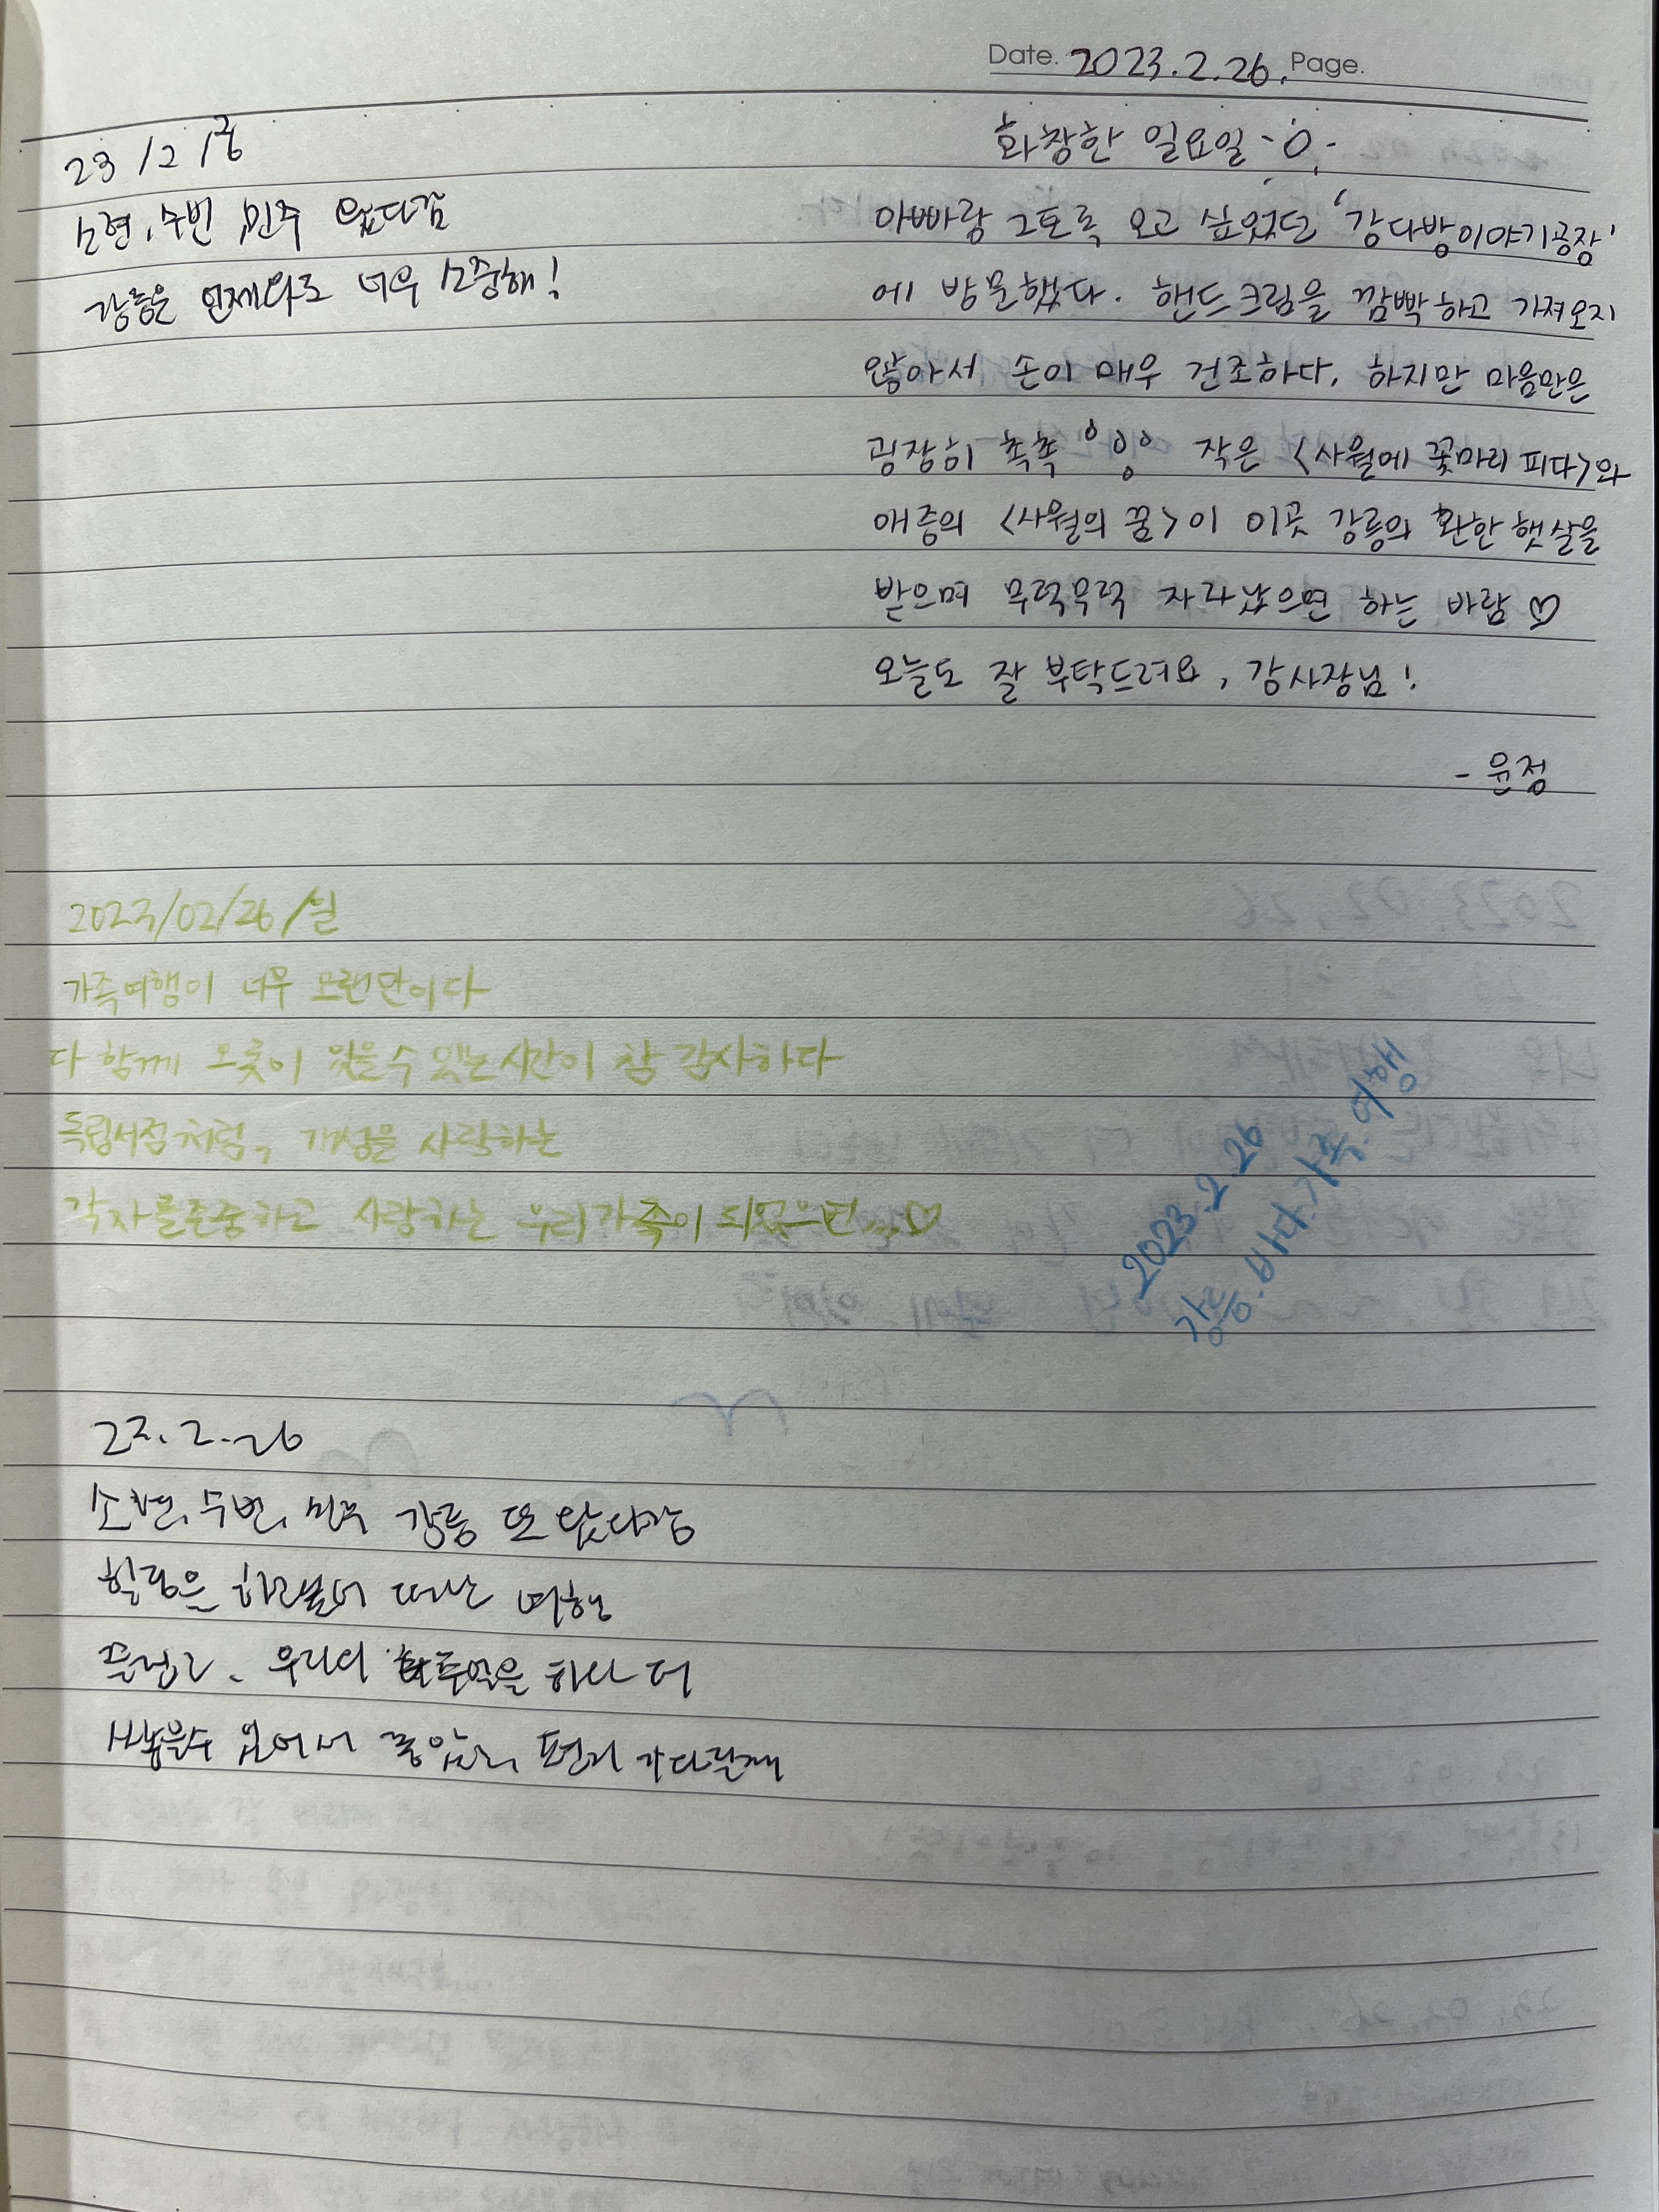 Date. 2023.2.26. Page.
23/2/26
소현, 수빈, 민주 왔다감
강릉은 언제와도 너무 소중해!
화창한 일요일
아빠랑 그토록 오고 싶었던 '강다방이야기공장'
에 방문했다. 핸드크림을 깜빡하고 가져오지
않아서 손이 매우 건조하다. 하지만 마음만은
굉장히 촉촉 작은 <사월에 꽃마리 피다>와
애증의 <사월의 꿈>이 이곳 강릉의 환한 햇살을
받으며 무럭무럭 자라났으면 하는 바람 ♡
오늘도 잘 부탁드려요, 강사장님!
- 윤정
2023/02/26/일
가족여행이 너무 오랜만이다
다 함께 오롯이 있을 수 있는 시간이 참 감사하다
독립서점처럼, 개성을 사랑하는
각자를 존중하고 사랑하는 우리가족이 되었으면...♡
2023.2.26
강릉.바다.가족.여행
23.2.26
소현, 수빈, 민주 강릉 또 왔다감
힐링을 떠난 여행
즐겁고, 우리의 추억을 하나 더
쌓을수 있어서 좋았고, 편지 기다릴게